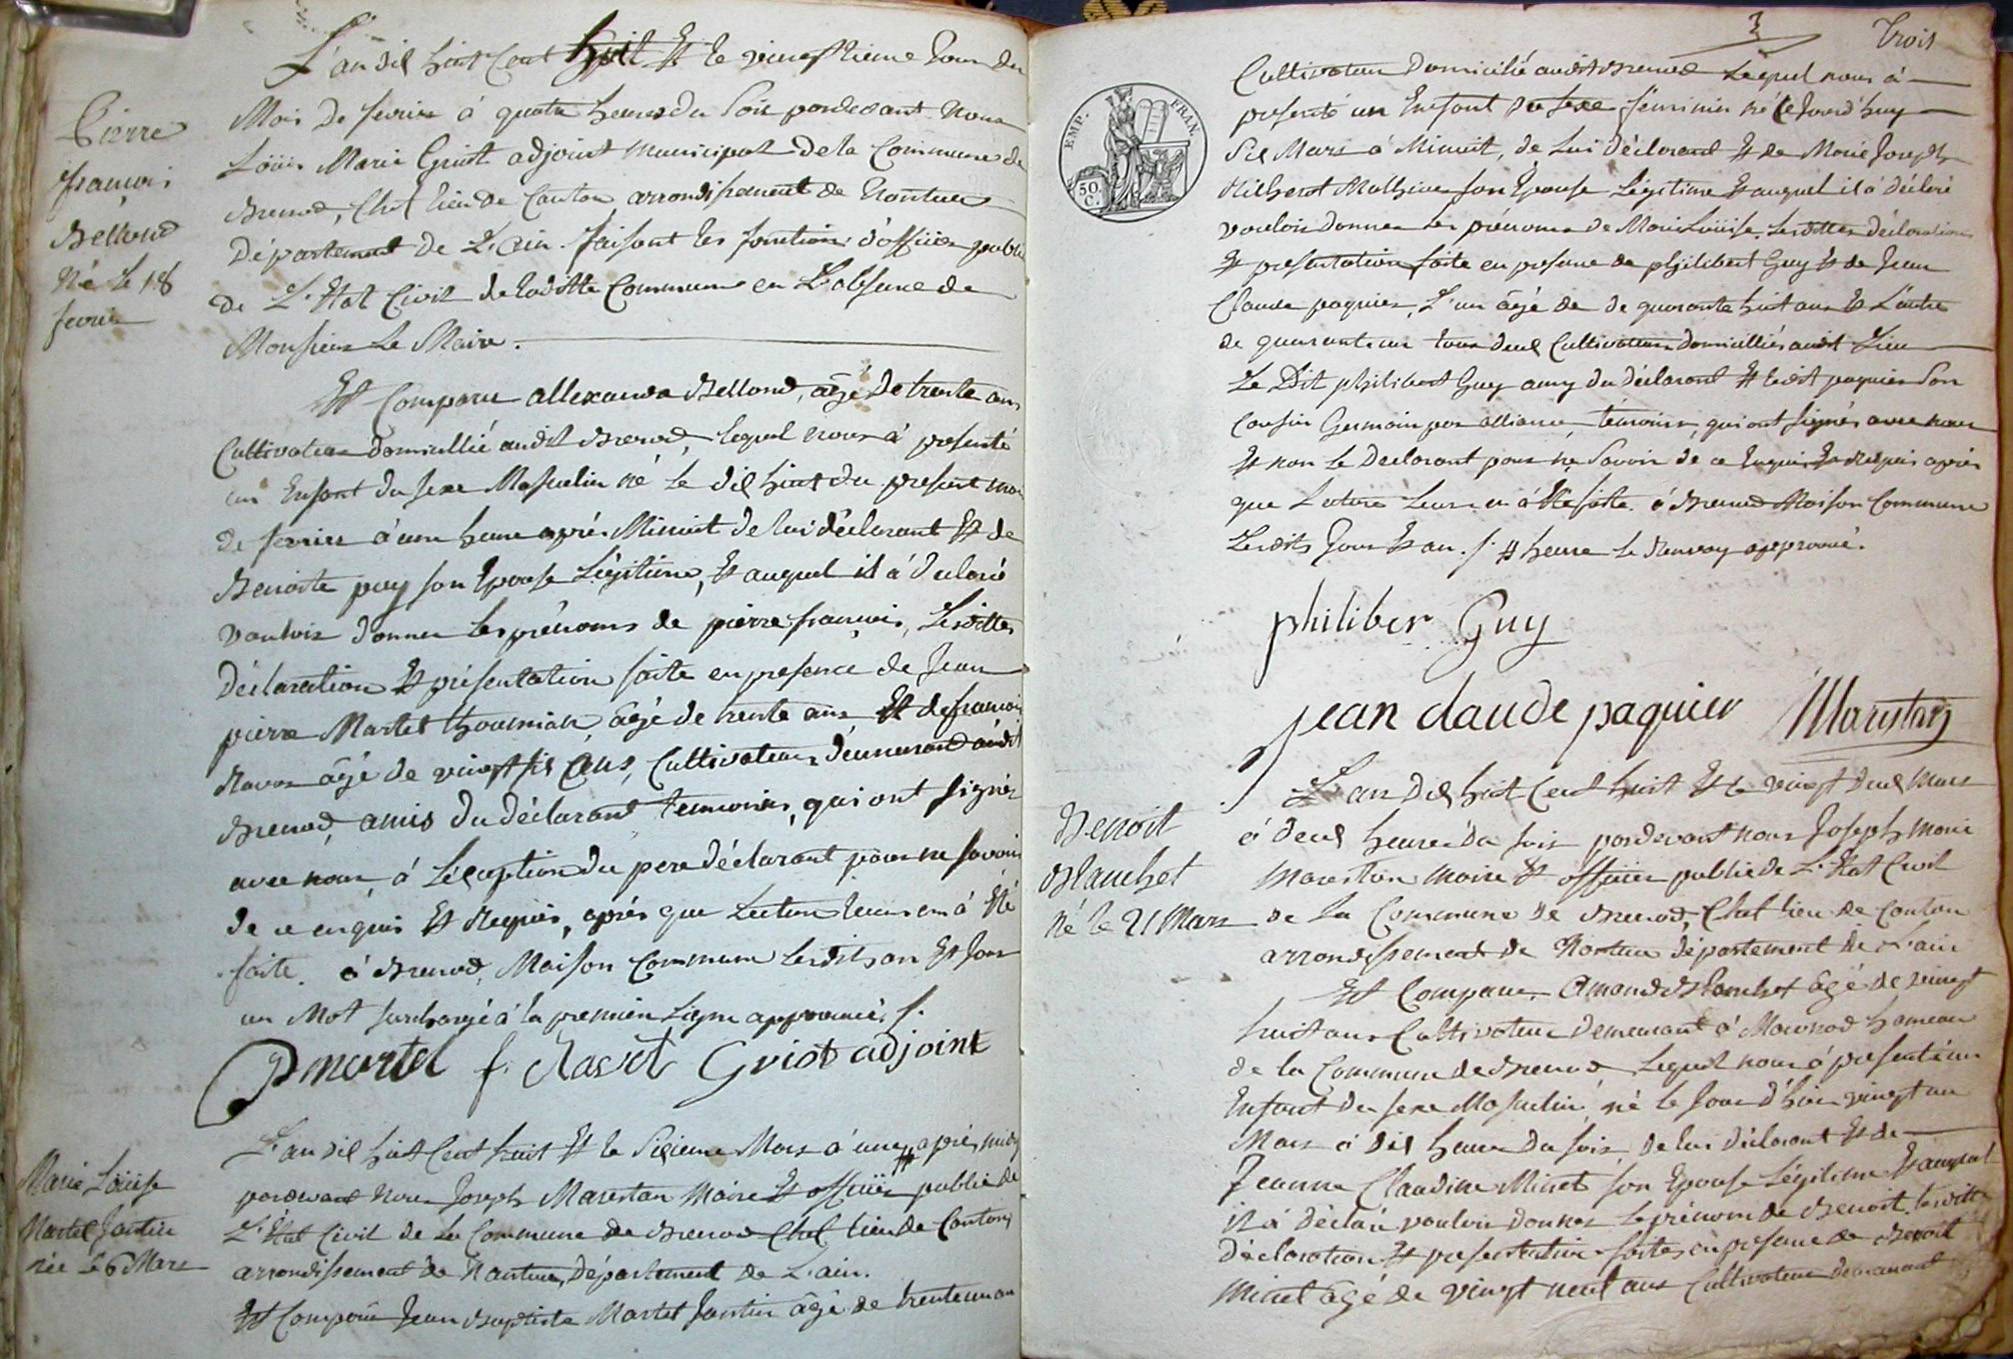 L'an dix huit Cent huit Et le vingtieme Jour du
Mois De fevrier á quatre heures du Soir pardevant Nous
Louis Marie Griot adjoint Municipal De la Commune de
Brenod, Chef lieu de Canton arrondissement de Nantua
Département de L'ain. faisant les fonctions d'officier public
de L'Etat Civil de laditte Commune en L'absence de
Monsieur Le Maire.
Pierre
françois
Bellond
Né Le 18
fevrier
Est Comparu allexandre Bellond, âgé de trente ans
Cultivateur domicillié audit Brenod, lequel nous á presenté
un Enfant du sexe Masculin né Le dix huit du present mois
de fevrier á une heure aprés Minuit de lui déclarant Et de
Benoite puy son Epouse Légitime, Et auquel il á declaré
vouloir donner Les prénoms de pierre françois, Lesdittes
déclaration Et présentation faite en presence de Jean
pierre Martel âgé de trente ans Et de françois
Ravet âgé de vingt six ans, Cultivateurs demeurant audit
Brenod, amis du déclarant temoins, qui ont signés
avec nous á L'éxception du pere déclarant pour ne savoir
de ce enquis Et Requis, aprés que Lecture leur en á Eté
faite. á Brenod, Maison Commune lesdits an Et Jour
un Mot surchargé á la premiere Ligne approuvé. f.
Pmartel f. Ravet Griot adjoint
Marie Loüise
Martel Jantin
née Le 6 Mars
L'an dix huit Cent huit Et le Sixieme Mars á une # aprés midy
pardevant Nous Joseph Marestan Maire Et officier public de
L'Etat Civil de La Commune de Brenod Chef lieu de Canton
arrondissement de Nantua, Département de L'ain.
Est Comparu Jean Baptiste Martel Jantin âgé de trente un an
3 Trois
Cultivateur Domicilié audit Brenod Lequel nous á
presenté un Enfant du sexe féminin né Ce Jourd'huy
Six Mars á Minuit, de Lui Déclarant Et de Marie Joseph
son Epouse Légitime Et auquel il á déclaré
vouloir donner Les prénoms de Marie Loüise. Lesdittes déclaration
Et presentation faite en presence de philibert Guy Et de Jean
Claude paquier, L'un âgé de de quarante huit ans Et L'autre
de quarante un tous deux Cultivateurs domicilliés audit Lieu
Le Dit philibert Guy amy du déclarant Et ledit paquier Son
Cousin Germain par alliance, temoins, qui ont signés avec nous
Et non Le Declarant pour ne Savoir de ce Enquis Et Requis aprés
que Lecture Leur en á Eté faite. á Brenod Maison Commune
Lesdits Jour Et an. f. # heure Le Renvoy approuvé.
EMP. FRAN.
50
C.
philiber Guy
jean claude paquier Marestan
Benoit
Blanchet
né le 21 Mars
L'an Dix huit Cent huit Et le vingt deux Mars
á deux heures du soir pardevant nous Joseph Marie
Marestan Maire Et officier public de L'Etat Civil
de La Commune de Brenod, Chef lieu de Canton
arrondissement de Nantua département de L'ain
Est Comparu Amand Blanchet âgé de vingt
huit ans Cultivateur demeurant á Macconod hameau
de la Commune de Brenod Lequel nous á presenté un
Enfant du sexe Masculin, né le Jour d'hier vingt un
Mars á dix heures du soir, de lui déclarant Et de
Jeanne Claudine Minet son Epouse Légitime Et auquel
il á déclaré vouloir donner Le prénom de Benoit, lesdittes
déclaration Et presentation faites en presence de Benoit
Minet âgé de vingt neuf ans Cultivateur demeurant